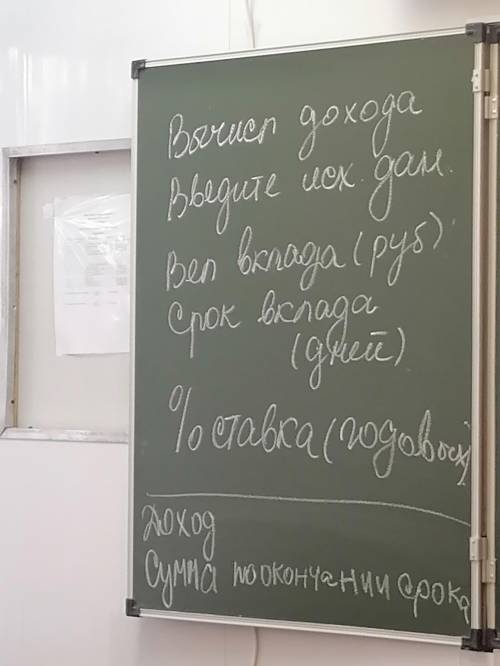 Вычисл дохода
Введите исх. дан.
Вел вклада (руб)
Срок вклада
(дней)
% ставка (годовых)
Доход
Сумма по окончании срока